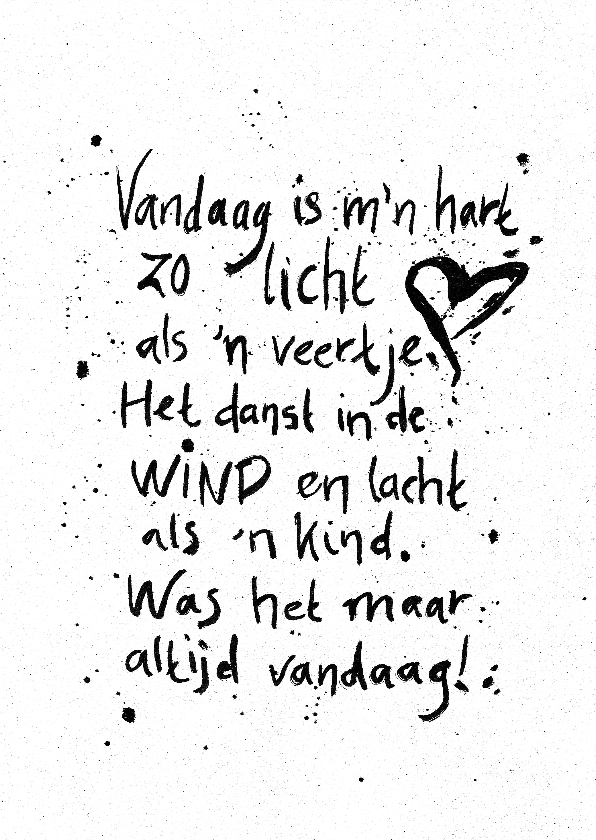 Vandaag is m'n hart
zo licht
als 'n veertje.
Het danst in de
WIND en lacht
als 'n kind.
Was het maar
altijd vandaag!